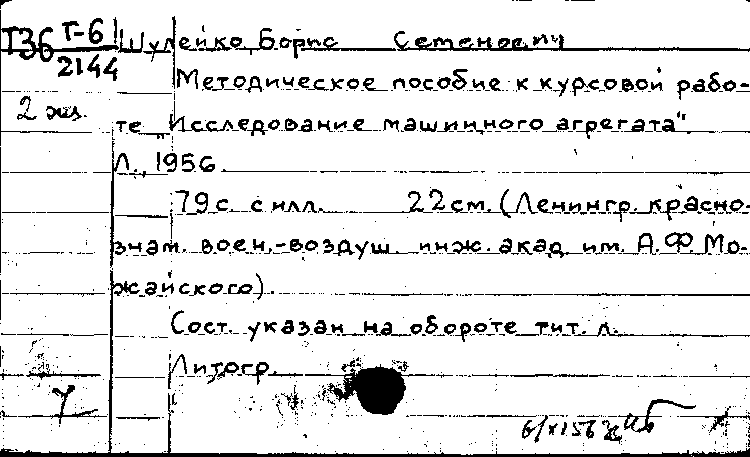 Т36 Г-6/2144
Шулейко, Борис Семенович
Методическое пособие к курсовой рабо-
2 экз.
те „Исследование машинного агрегата".
Л., 1956.
79 с. с илл. 22 см. (Ленингр. красно-
знам. воен.-воздуш. инж. акад. им. А.Ф. Мо-
жайского).
Сост. указан на обороте тит. л.
Литогр.